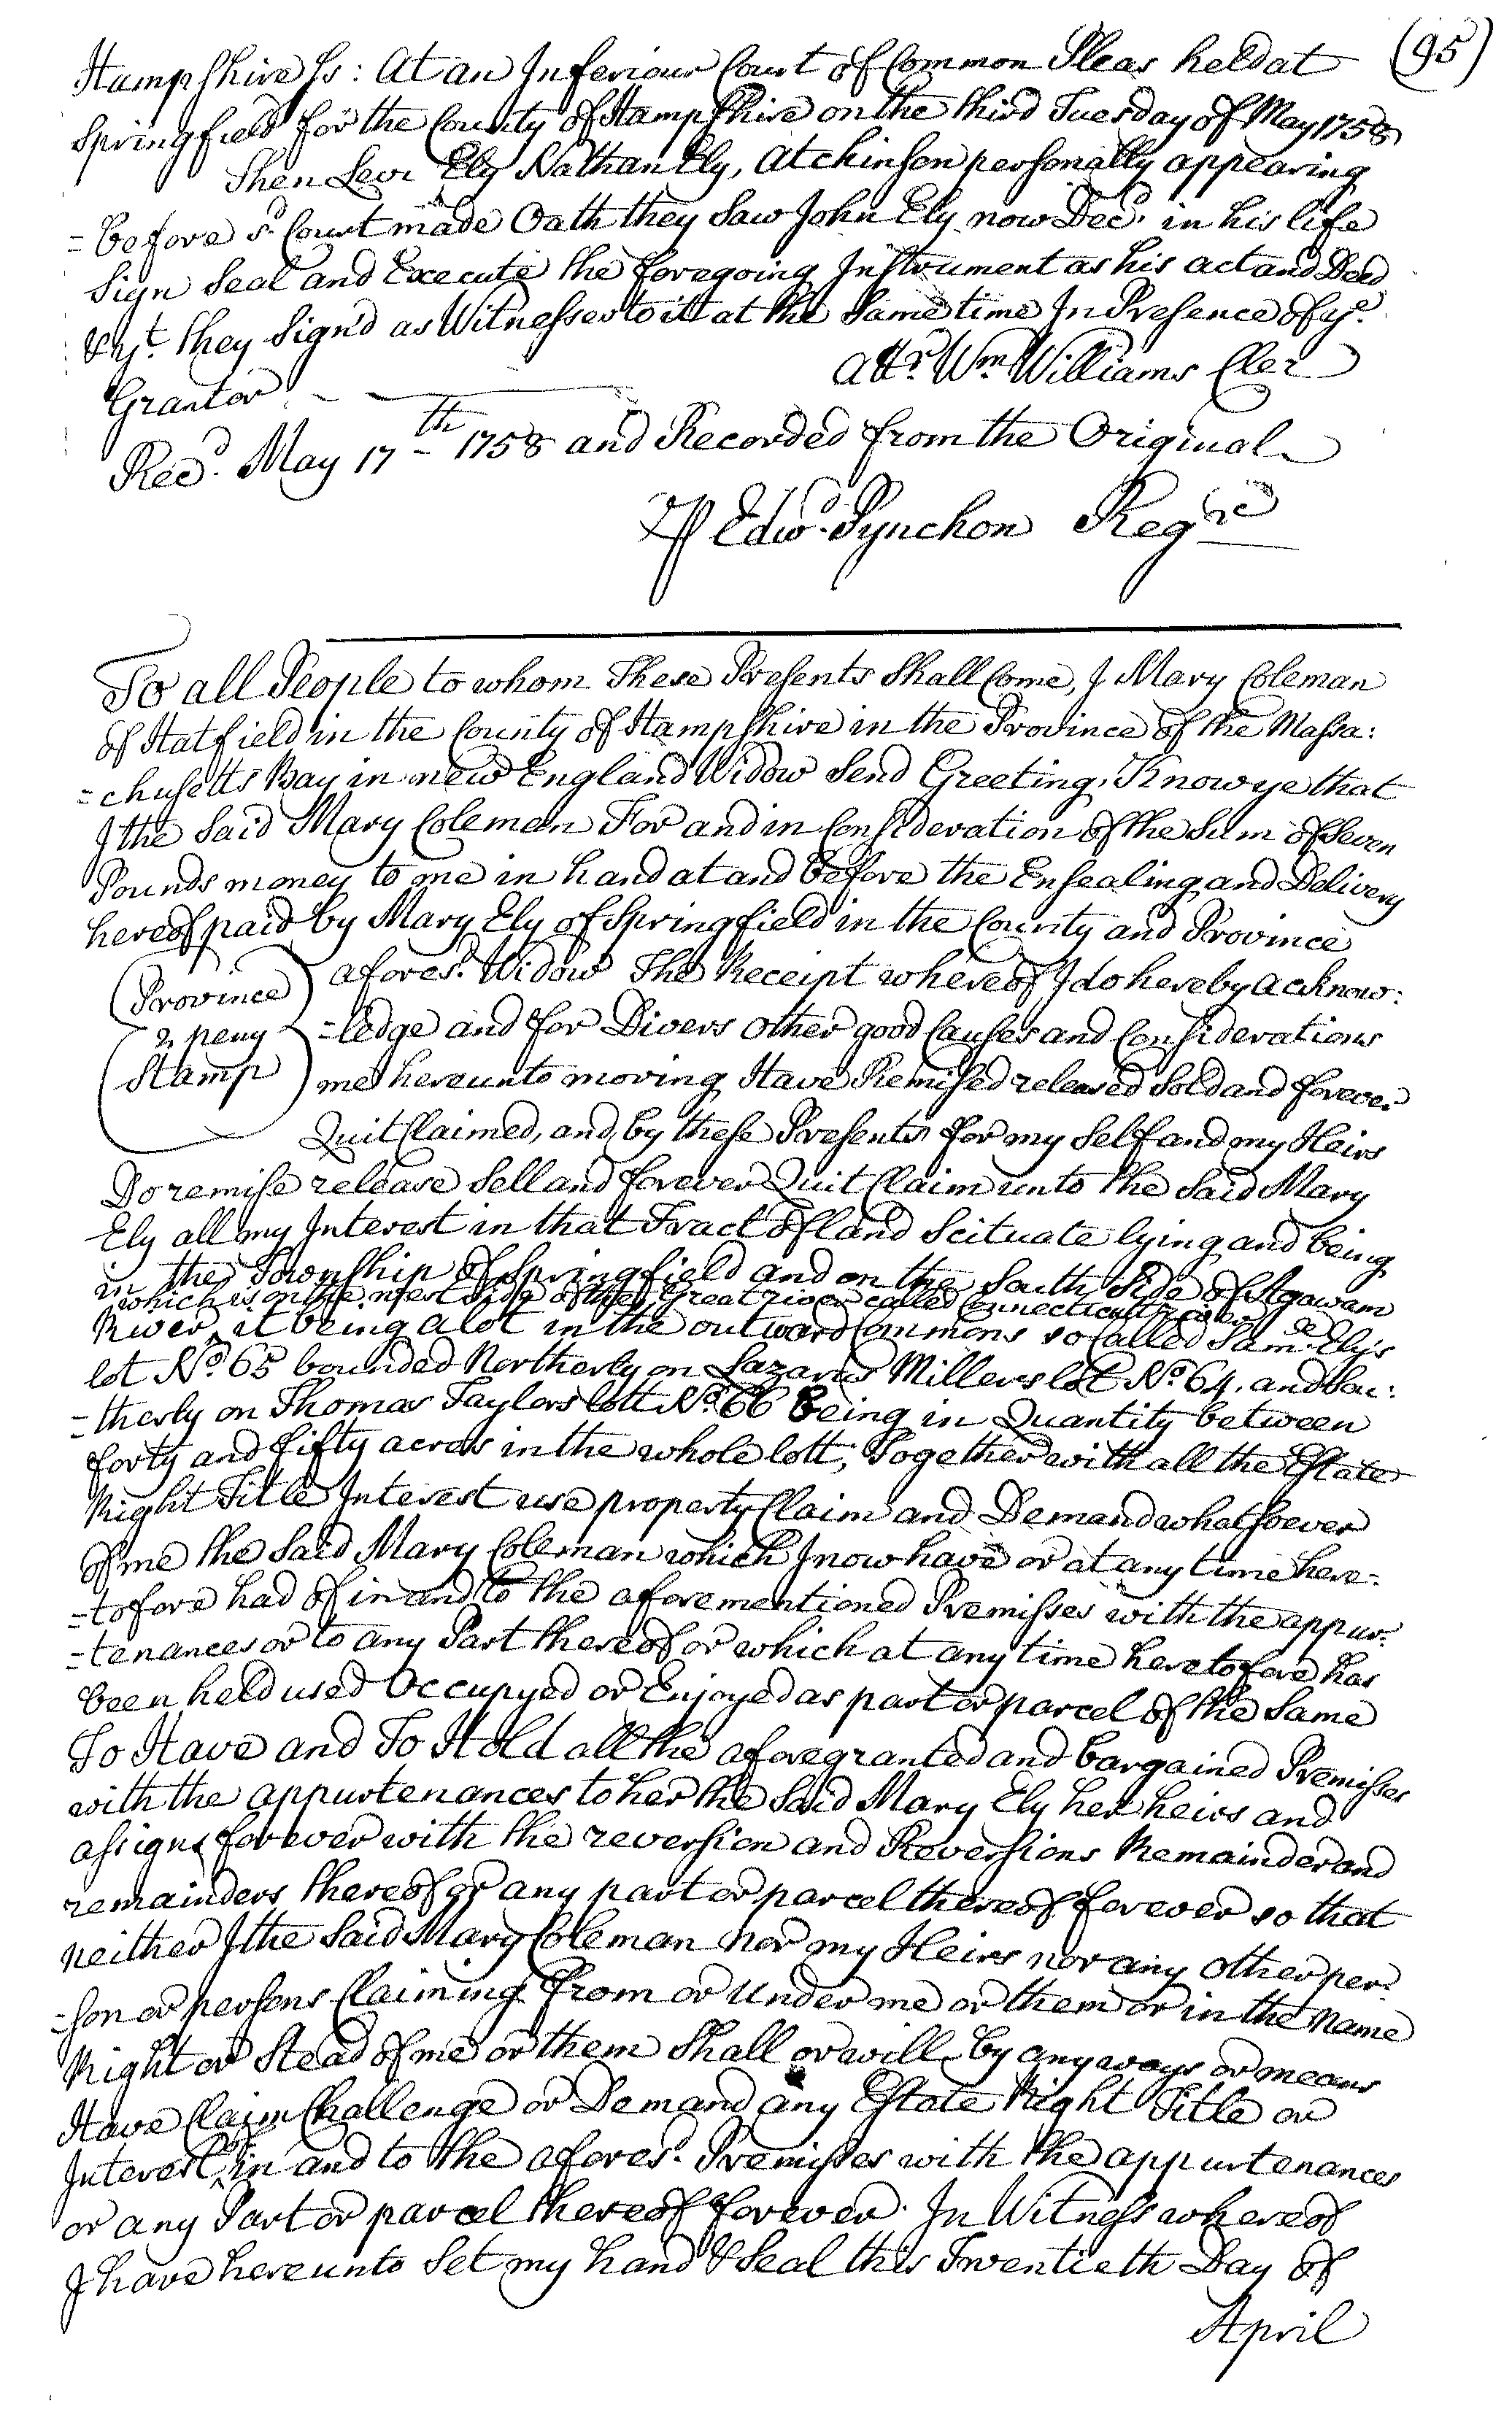 (95)
Hampshire Ss: At an Inferiour Court of Common Pleas held at
Springfield for the County of Hampshire on the third Tuesday of May 1758
Then Levi Ely Nathan Ely, Atchinson personally appearing
=before sd. Court made Oath they Saw John Ely now Decd. in his life
Sign Seal and Execute the foregoing Instrument as his act and Deed
& yt. they Sign'd as Witnesses to it at the Same time In Presence of ye.
Grantor.
Attr. Wm Williams Cler
Recd. May 17th 1758 and Recorded from the Original
P Edwd. Pynchon Regr
To all People to whom These Presents Shall Come, I Mary Coleman
of Hatfield in the County of Hampshire in the Province of the Massa:
=chusetts Bay in new England Widow Send Greeting, Know ye that
I the Said Mary Coleman For and in Consideration of the Sum of Seven
Pounds money to me in hand at and before the Ensealing and Delivery
hereof paid by Mary Ely of Springfield in the County and Province
(Province
2 peny
Stamp)
afores.d Widow The Receipt whereof I do hereby acknow:
=ledge and for Divers other good Causes and Considerations
me hereunto moving Have Remised released Sold and forever
Quit Claimed, and by these Presents for my Self and my Heirs
Do remise release Sell and forever Quit Claim unto the Said Mary
Ely all my Interest in that Tract of land Scituate lying and being
in the Township of Springfield and on the South Side of Agawam
which is on the west Side of the Great river called Connecticut river
River ^ it being a lot in the outward Commons so Called Sam.ll Ely's
lot No. 65 bounded Northerly on Lazarus Millers lot No. 64. and Sou:
=therly on Thomas Taylors lott No. 66 Being in Quantity between
forty and fifty acres in the whole lott; Together with all the Estate
Right Title Interest use property Claim and Demand whatsoever
of me the Said Mary Coleman which I now have or at any time here=
=tofore had of in and to the aforementioned Premisses with the appur:
=tenances or to any Part thereof or which at any time heretofore has
been held used Occupyed or Enjoyed as part or parcel of the Same
To Have and To Hold all the aforegranted and bargained Premisses
with the appurtenances to her the Said Mary Ely her heirs and
assigns forever with the reversion and Reversions Remainder and
remainders thereof or any part or parcel thereof forever so that
neither I the Said Mary Coleman nor my Heirs nor any other per:
=son or persons Claiming from or Under me or them or in the Name
Right or Stead of me or them Shall or will by any ways or means
Have Claim Challenge or Demand any Estate Right Title or
Interest ^of in and to the afores.d Premisses with the appurtenances
or any Part or parcel thereof forever. In Witness whereof
I have hereunto Set my hand & Seal this Twentieth Day of
April